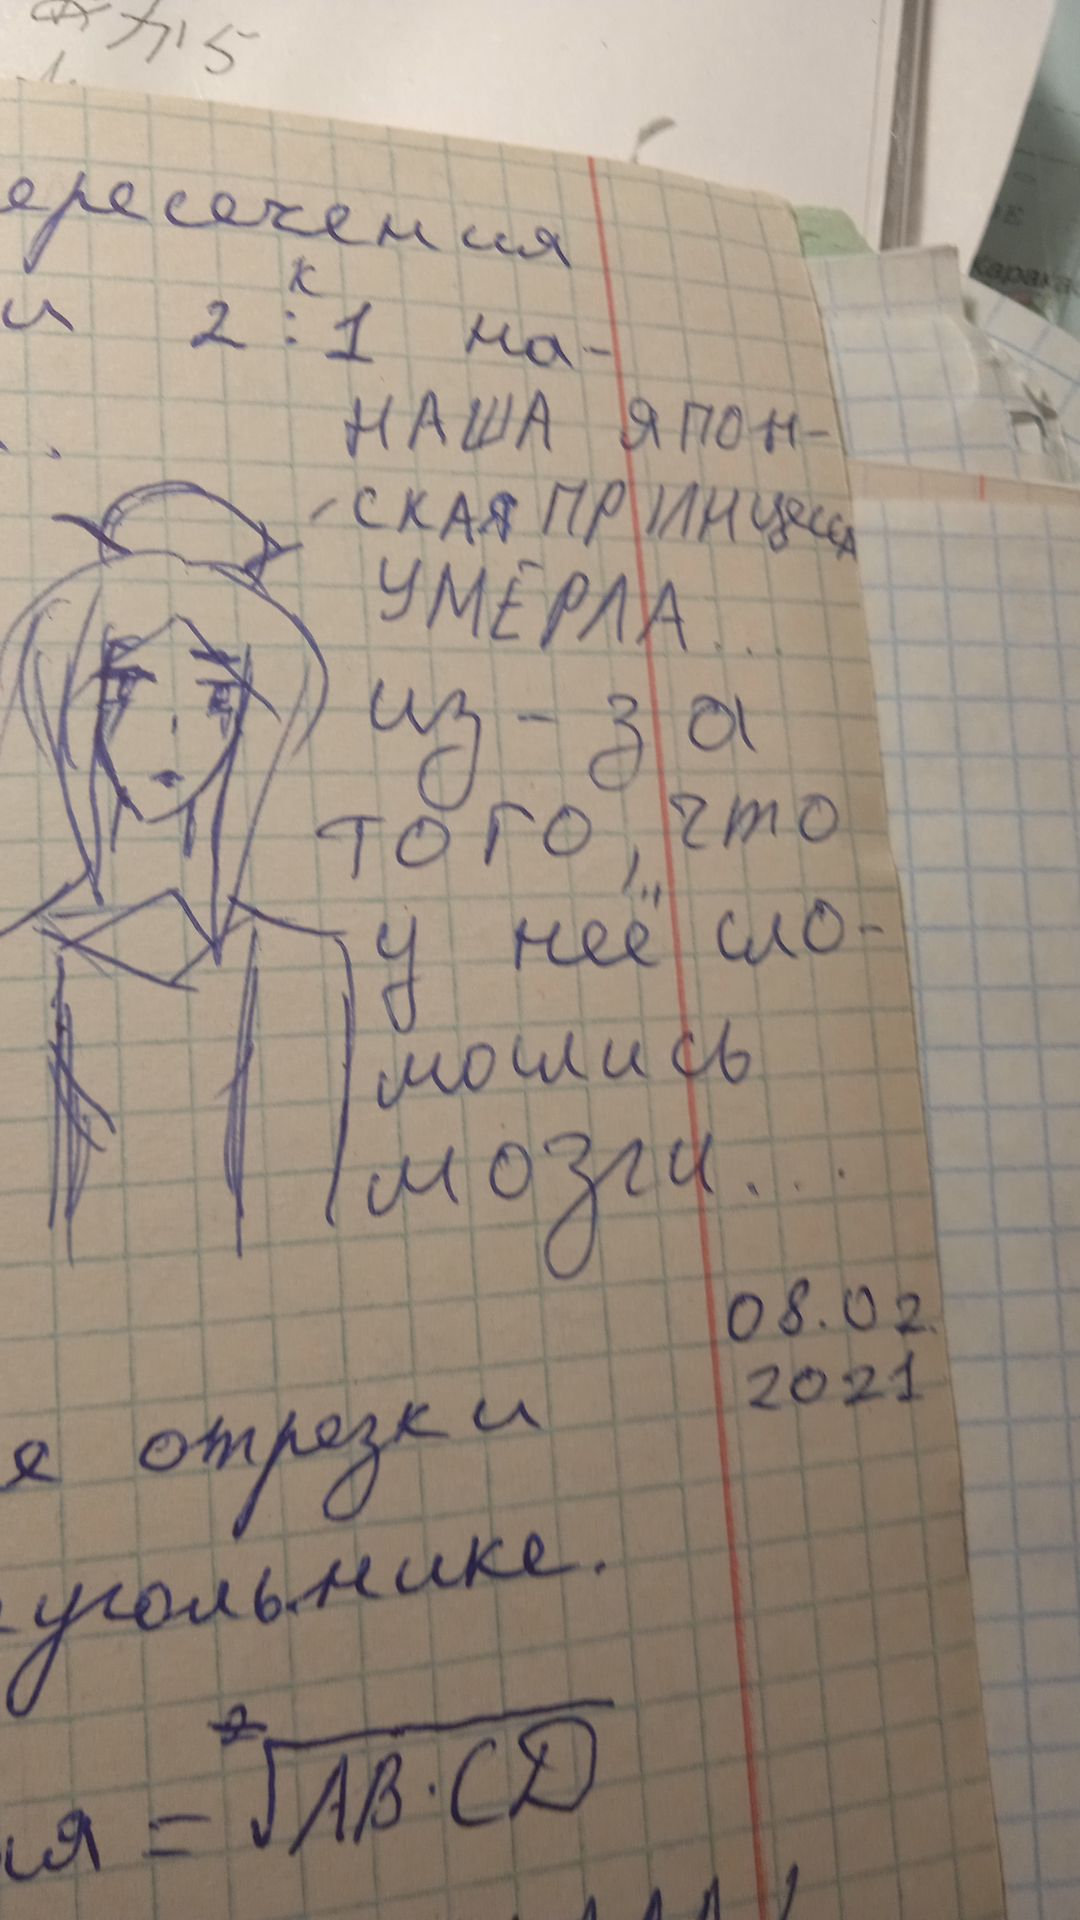 5
ересечения
и 2 : 1 на-
к
...
НАША ЯПОН-
-СКАЯ ПРИНЦЕССА
УМЁРЛА...
из-за
того, что
у неё сло-
мались
мозги...
08.02.
2021
е отрезки
угольнике.
ия = √AB·CD
карака